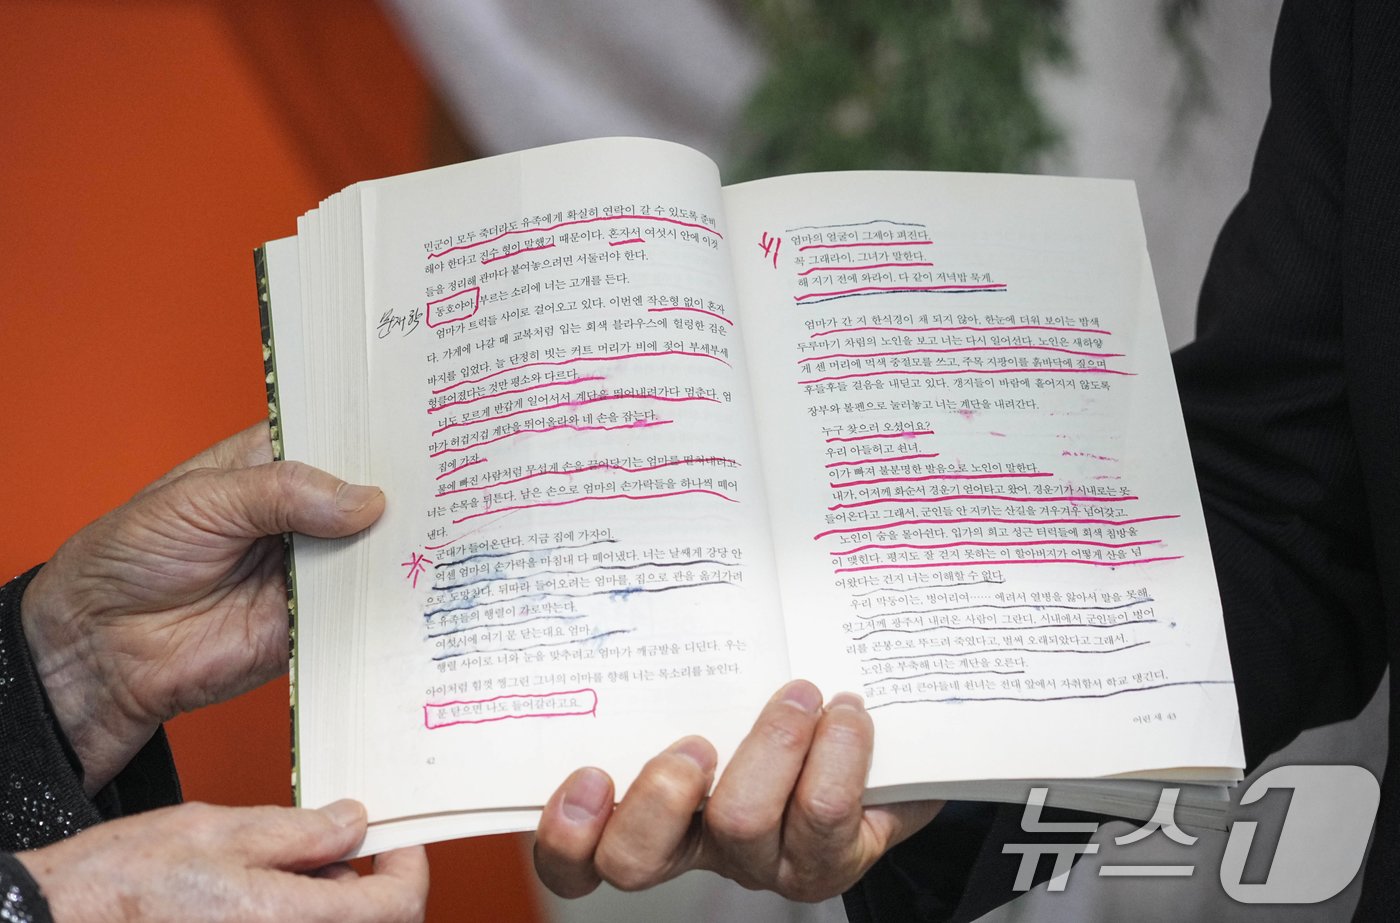 민군이 모두 죽더라도 유족에게 확실히 연락이 갈 수 있도록 준비
해야 한다고 진수 형이 말했기 때문이다. 혼자서 여섯시 안에 이것
들을 정리해 관마다 붙여놓으려면 서둘러야 한다.
동호야아, 부르는 소리에 너는 고개를 든다.
문재학
엄마가 트럭들 사이로 걸어오고 있다. 이번엔 작은형 없이 혼자
다. 가게에 나갈 때 교복처럼 입는 회색 블라우스에 헐렁한 검은
바지를 입었다. 늘 단정히 빗는 커트 머리가 비에 젖어 부세부세
헝클어졌다는 것만 평소와 다르다.
너도 모르게 반갑게 일어서서 계단을 뛰어내려가다 멈춘다. 엄
마가 허겁지겁 계단을 뛰어올라와 네 손을 잡는다.
집에 가자.
물에 빠진 사람처럼 무섭게 손을 끌어당기는 엄마를 떨쳐내려고
너는 손목을 뒤튼다. 남은 손으로 엄마의 손가락들을 하나씩 떼어
낸다.
군대가 들어온단다. 지금 집에 가자이.
억센 엄마의 손가락을 마침내 다 떼어냈다. 너는 날쌔게 강당 안
으로 도망친다. 뒤따라 들어오려는 엄마를, 집으로 관을 옮겨가려
는 유족들의 행렬이 가로막는다.
여섯시에 여기 문 닫는대요 엄마.
행렬 사이로 너와 눈을 맞추려고 엄마가 깨금발을 디딘다. 우는
아이처럼 힘껏 찡그린 그녀의 이마를 향해 너는 목소리를 높인다.
문 닫으면 나도 들어갈라고요.
42
엄마의 얼굴이 그제야 펴진다.
꼭 그래라이, 그녀가 말한다.
해 지기 전에 와라이. 다 같이 저녁밥 묵게.
엄마가 간 지 한식경이 채 되지 않아, 한눈에 더워 보이는 밤색
두루마기 차림의 노인을 보고 너는 다시 일어선다. 노인은 새하얗
게 센 머리에 먹색 중절모를 쓰고, 주목 지팡이를 흙바닥에 짚으며
후들후들 걸음을 내딛고 있다. 갱지들이 바람에 흩어지지 않도록
장부와 볼펜으로 눌러놓고 너는 계단을 내려간다.
누구 찾으러 오셨어요?
우리 아들허고 손녀.
이가 빠져 불분명한 발음으로 노인이 말한다.
내가, 어저께 화순서 경운기 얻어타고 왔어. 경운기가 시내로는 못
들어온다고 그래서, 군인들 안 지키는 산길을 겨우겨우 넘어갖고.
노인이 숨을 몰아쉰다. 입가의 희고 성근 터럭들에 회색 침방울
이 맺힌다. 평지도 잘 걷지 못하는 이 할아버지가 어떻게 산을 넘
어왔다는 건지 너는 이해할 수 없다.
우리 막둥이는, 벙어리여…… 에려서 열병을 앓아서 말을 못해.
엊그저께 광주서 내려온 사람이 그란디. 시내에서 군인들이 벙어
리를 곤봉으로 뚜드려 죽였다고, 벌써 오래되았다고 그래서.
노인을 부축해 너는 계단을 오른다.
글고 우리 큰아들네 손녀는 전대 앞에서 자취함서 학교 댕긴다.
어린 새 43
뉴스1